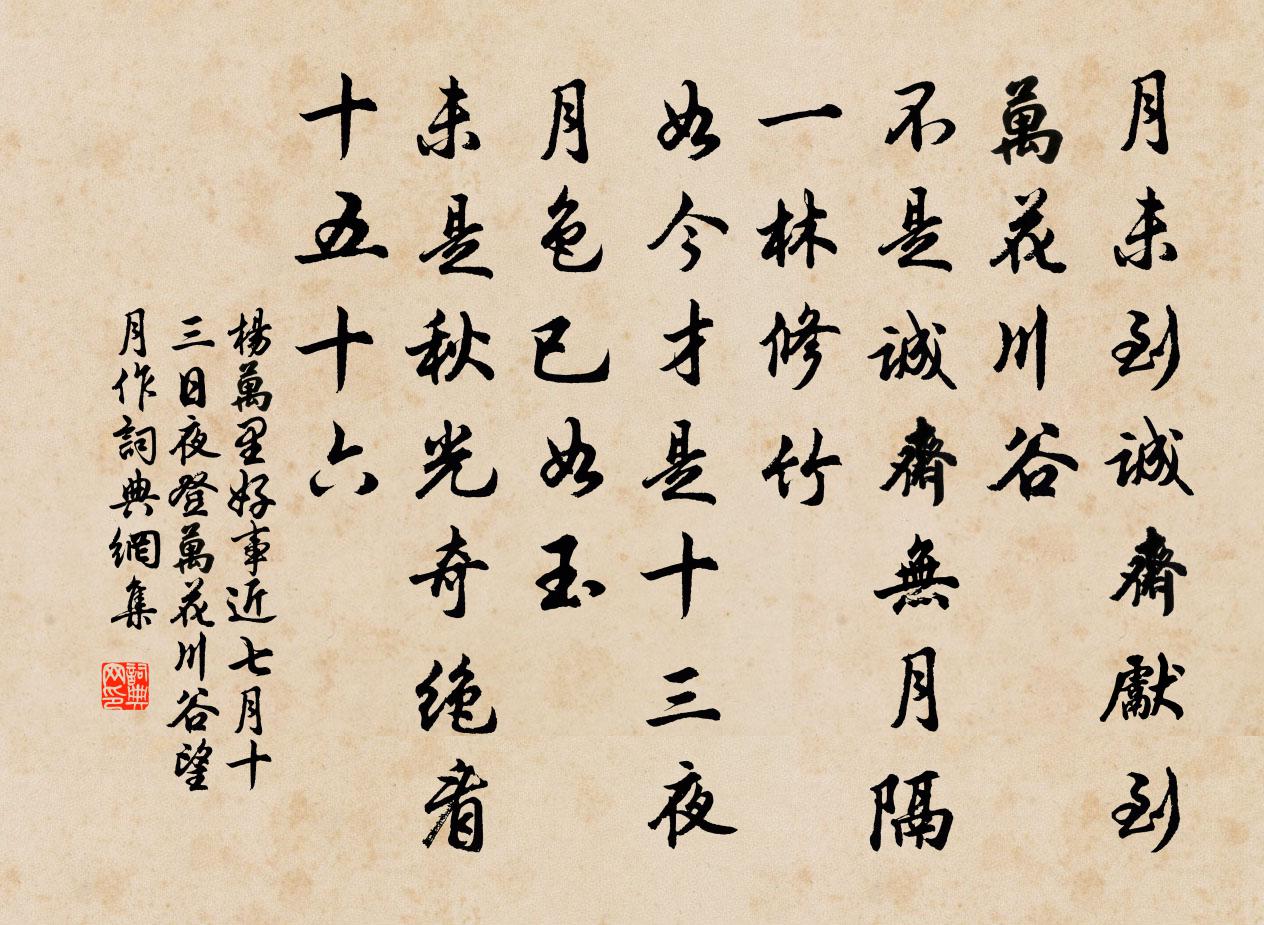 月未到誠齋獻到
萬花川谷
不是誠齋無月隔
一林修竹
如今才是十三夜
月色已如玉
未是秋光奇絶看
十五十六
楊萬里好事近七月十
三日夜登萬花川谷望
月作詞典網集
詞典网印